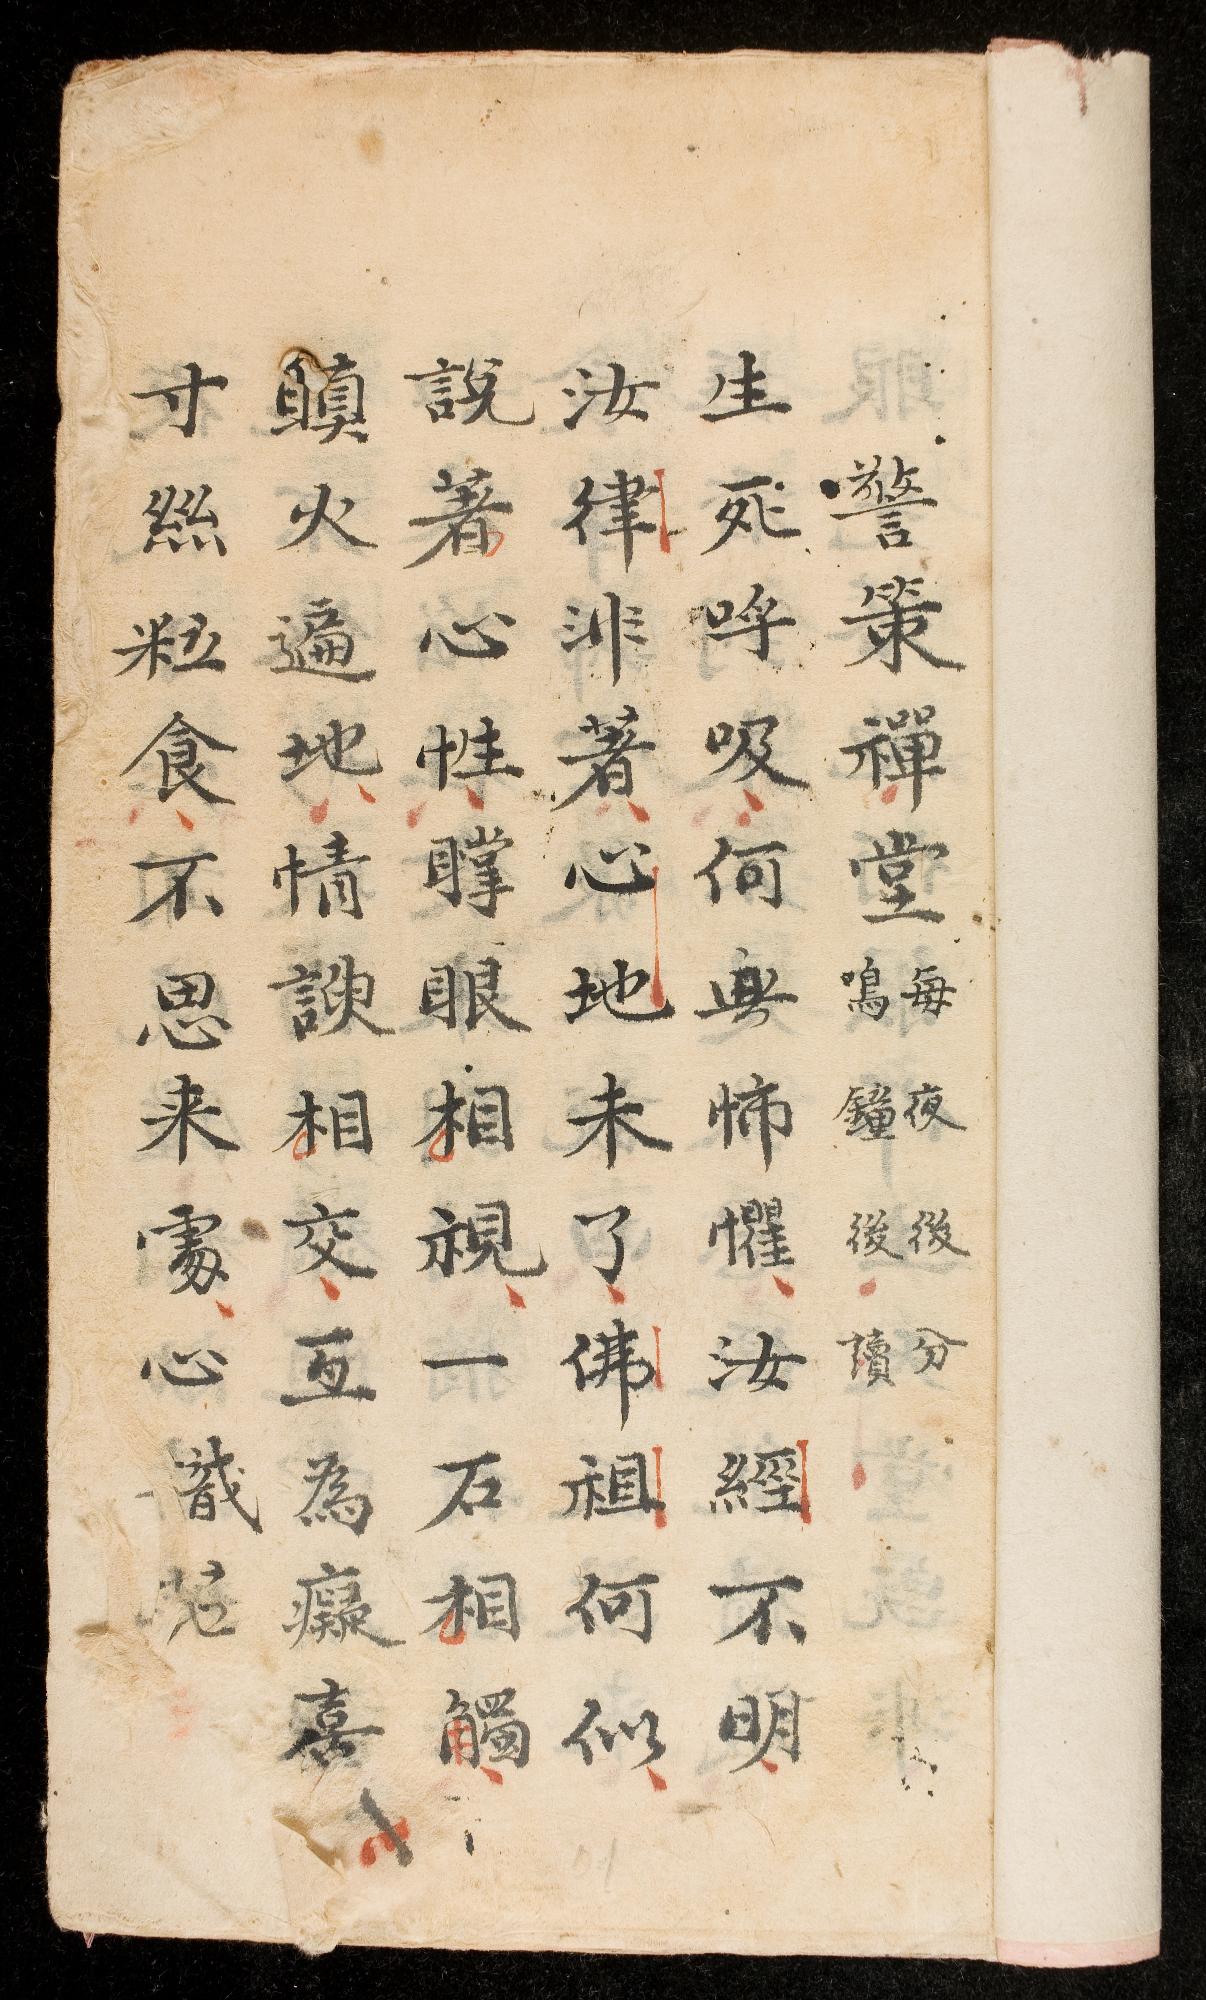 警策禪堂 每夜後分鳴鐘後讀
生死呼吸何無怖懼汝經不明
汝律非著心地未了佛祖何似
說著心性瞠眼相視一石相觸
瞋火遍地情諛相交互為癡喜
寸絲粒食不思来處心